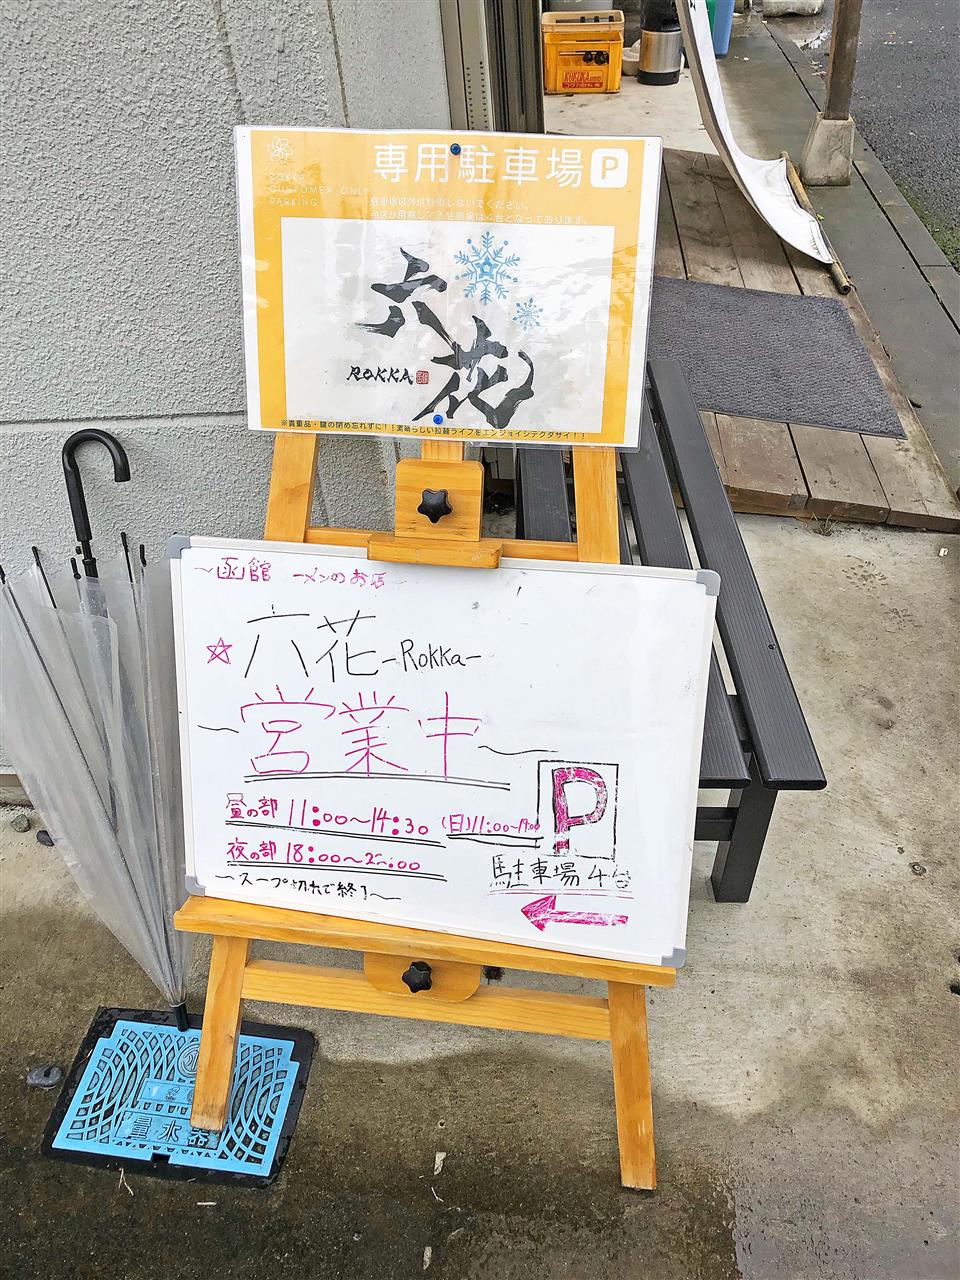 ROKKA
CUSTOMER-ONLY
PARKING
専用駐車場 P
駐車場以外は駐車しないでください。
当店が用意してる駐車場は4台となっております。
六花
ROKKA
※貴重品・鍵の閉め忘れずに!!素晴らしい拉麺ライフをエンジョイシテクダサイ!!
～函館 ーメンのお店
☆六花-Rokka-
～営業中～
昼の部 11:00～14:30 (日)11:00～
夜の部 18:00～
～スープ切れで終了～
P
駐車場4台
量水器